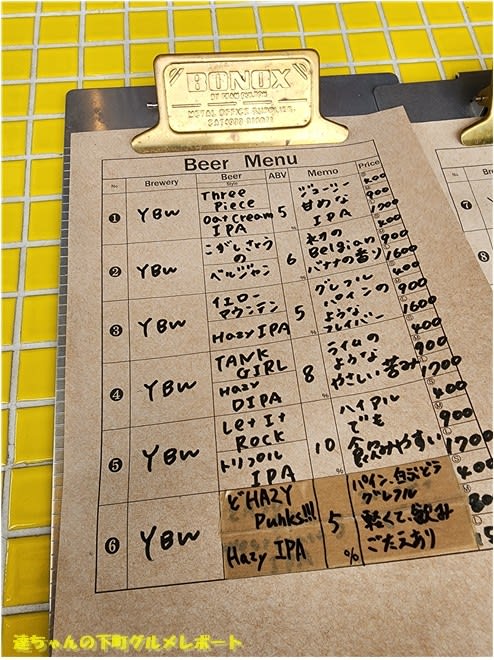 BONOX
Beer Menu
No Brewery Beer Style ABV Memo Price
1 YBW Three Piece Oat Cream IPA 5% ジューシー 甘めな IPA S400 M900 L1700
2 YBW こがしさとうの ベルジャン 6% Belgian バナナの香り S400 M900 L1600
3 YBW イエロー マウンテン Hazy IPA 5% グレフル パインの ような フレイバー S400 M900 L1600
4 YBW TANK GIRL Hazy DIPA 8% ライムの ような やさしい苦み S400 M900 L1700
5 YBW Let It Rock トリプル IPA 10% ハイアル でも 飲みやすい S400 M900 L1700
6 YBW ど HAZY Punks!!! Hazy IPA 5% パイン、白ぶどう グレフル 軽くて、飲み ごたえあり
7
8
達ちゃんの下町グルメレポート